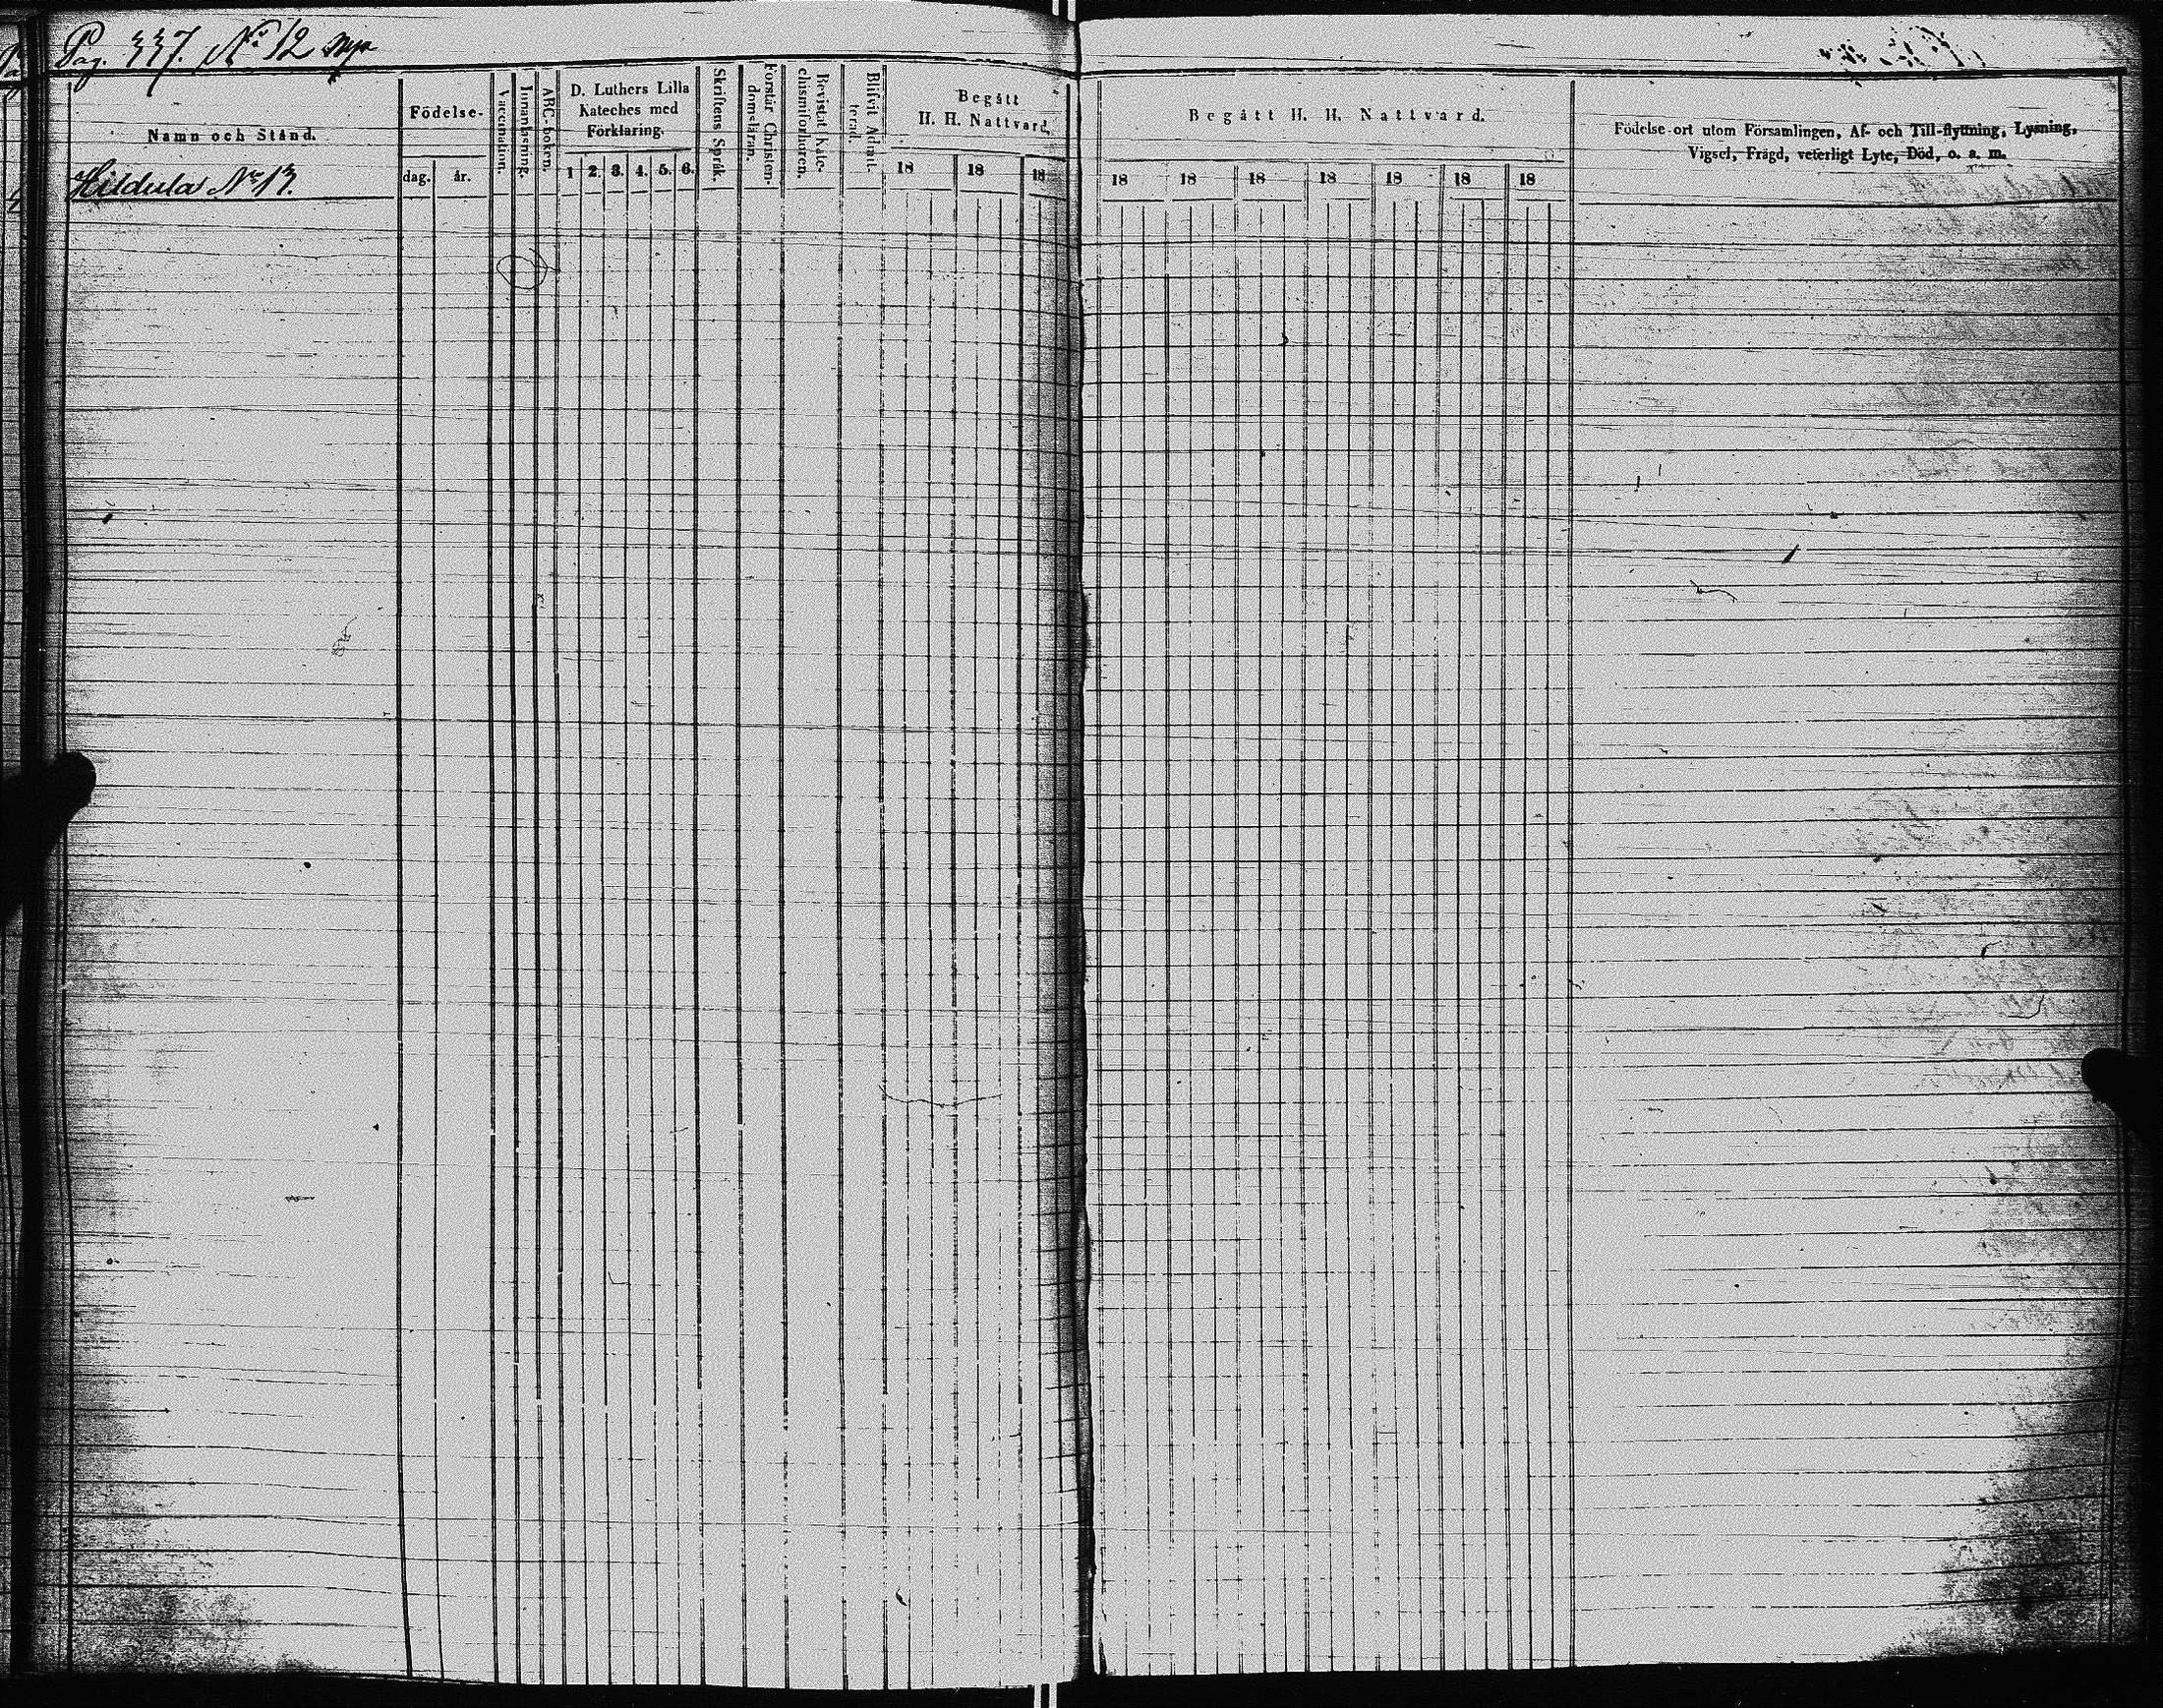 Pag. 337. No 12 nya
Namn och Stånd.
Hildula No 13.
Födelse-
dag. år.
Vaccination.
Innanläsning.
ABC-boken.
D. Luthers Lilla
Kateches med
Förklaring.
1 2. 3. 4. 5. 6.
Skriftens Språk.
Förstår Christen-
domsläran.
Bevistat Kate-
chismiförhören.
Blifvit Admit-
terad.
Begått
H. H. Nattvard.
18 18 18
Begått H. H. Nattvard.
18 18 18 18 18 18 18
Födelse-ort utom Församlingen, Af- och Till-flyttning, Lysning,
Vigsel, Frägd, veterligt Lyte, Död, o. s. m.